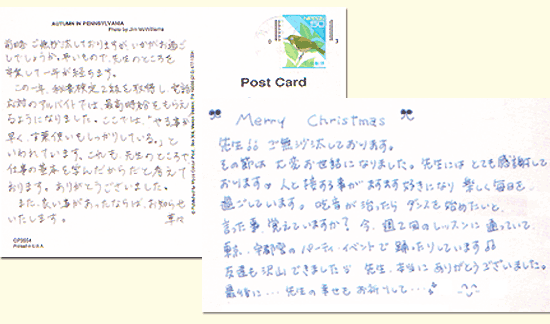 AUTUMN IN PENNSYLVANIA
Photo by Jim McWilliams
前略 ご無沙汰しておりますが、いかがお過ご
しでしょうか。早いもので、先生のところを
卒業して一年が経ちます。
この一年、秘書検定2級を取得し、電話
応対のアルバイトでは、最高時給をもらえ
るようになりました。ここでは、「やる事が
早く、言葉使いもしっかりしている。」と
いわれています。これも、先生のところで
仕事の基本を学んだからだと考えて
おります。ありがとうございました。
また、良い事があったならば、お知らせ
いたします。
草々
Printed in U.S.A.
Post Card
Merry Christmas
先生 ご無沙汰しております。
その節は大変お世話になりました。先生にはとても感謝して
おります。人と接する事がますます好きになり 楽しく毎日を
過ごしています。吃音が治ったら ダンスを始めたいと、
言った事、覚えていますか? 今、週2回のレッスンに通っていて、
東京、宇都宮のパーティ・イベントで踊ったりしています♫
友達も沢山できました 先生、本当にありがとうございました。
最後に… 先生の幸せをお祈りして…